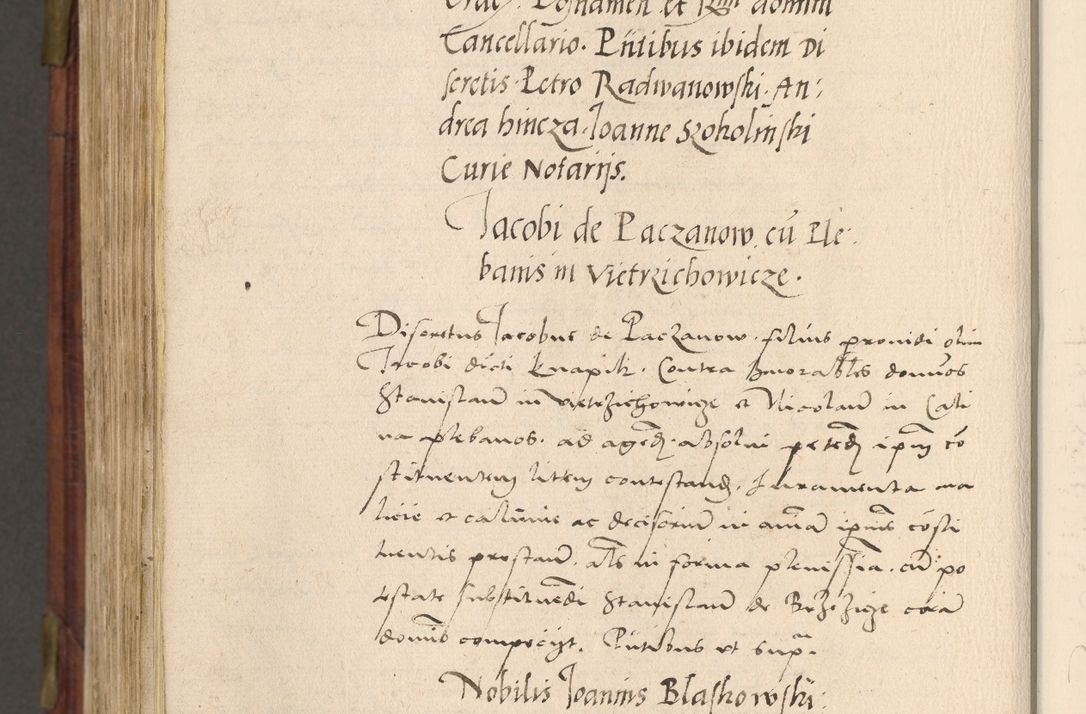 Cancellario. Pñtibus ibidem Di
scretis Petro Radwanowski. An:
drea hincza. Joanne Szokolinski
Curie Notarijs.
Jacobi de Paczanow cū Ple:
banis in Vietrzichowicze.
Discretus Jacobus de Paczanow. filius providi olim
Jacobi dicti knapik. Contra honorabiles domios
Stanislaum in Vietrzichowicze et Nicolaum in Cali
na plebanos. ad agend. absolvi petend ipm co
stituentem litem contestand. Juramenta ma
licie et calumnie ac decisorium in aīam ipius costi
tuentis prestand. als in forma plenissīa. cū po
testate substituendi Stanislaum de Brzezige cora
domīs comparijt. Pñtibus ut supra.
Nobilis Joannis Blaskowski: